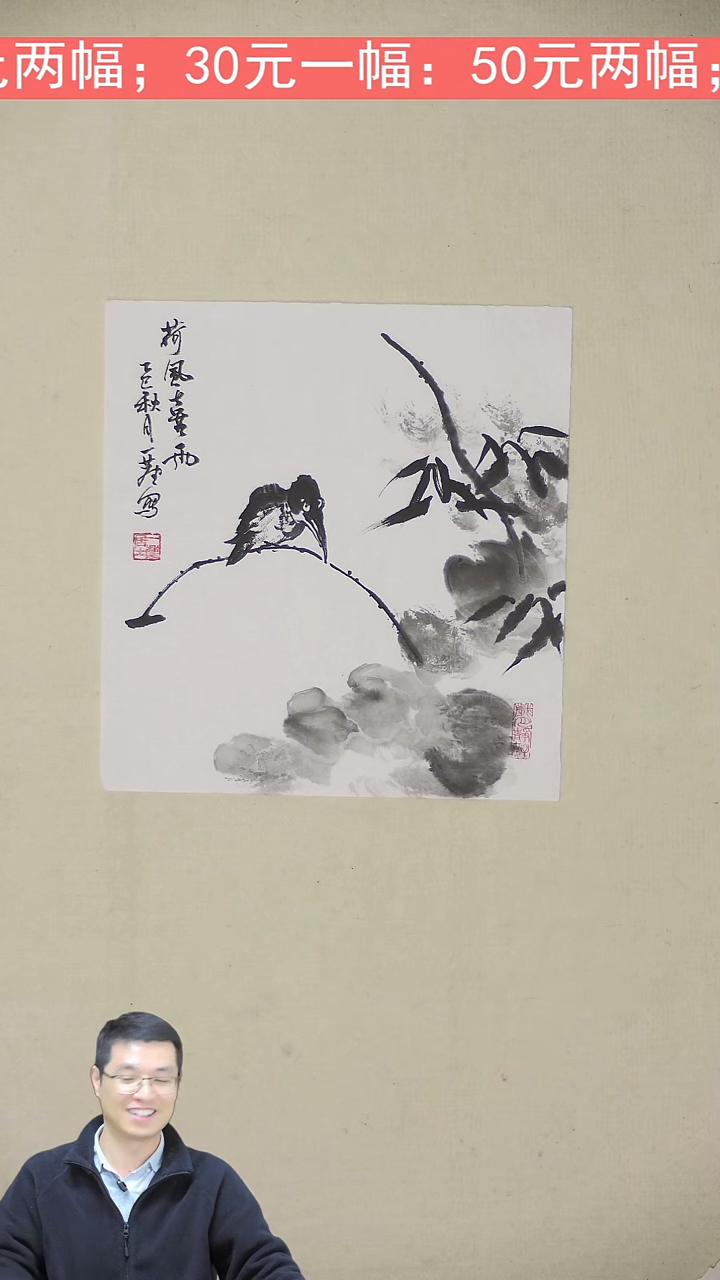 元两幅；30元一幅：50元两幅；
荷风喜雨
乙巳秋月
写